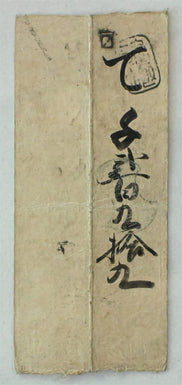 て
千弐百九拾九